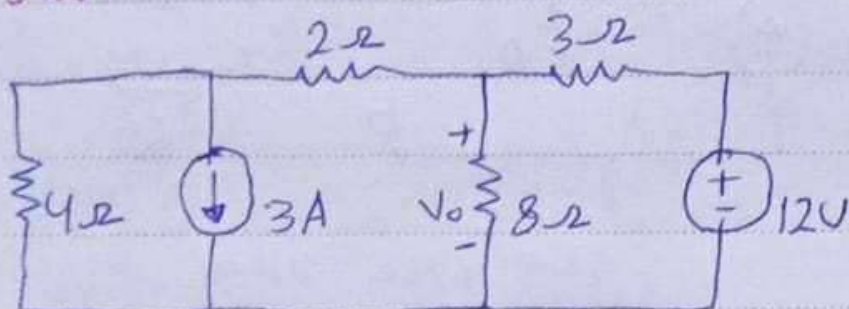 2Ω 3Ω
4Ω 3A + Vo - 8Ω + - 12V